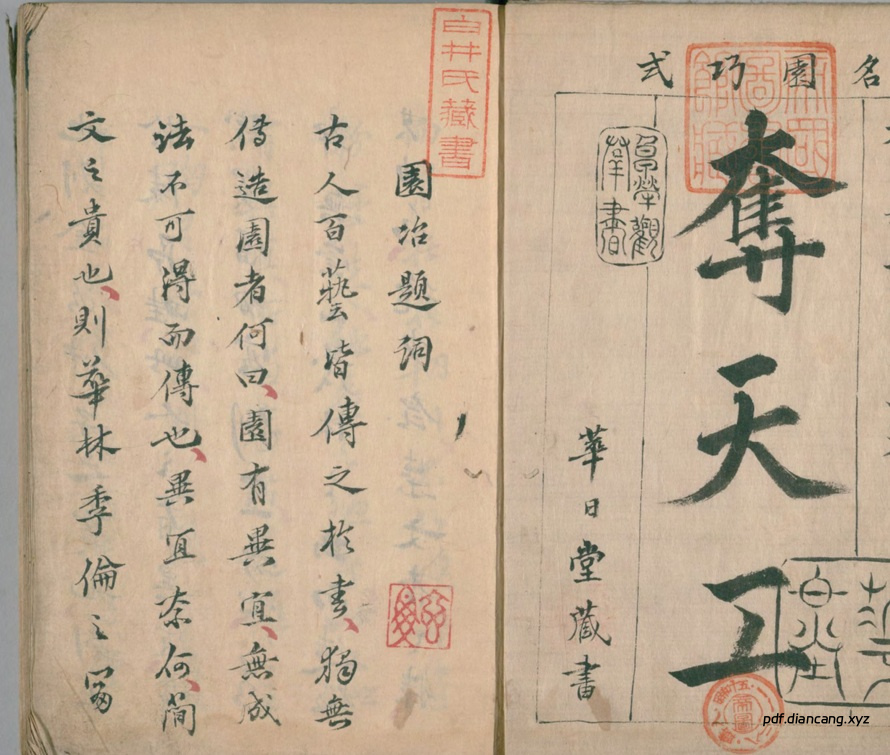 名園巧式
奪天工
華日堂藏書
白井氏藏書
園冶題詞
古人百藝皆傳之於書獨無
傳造園者何曰園有異宜無成
法不可得而傳也異宜奈何簡
文之貴也則華林季倫之富
pdf.diancang.xyz